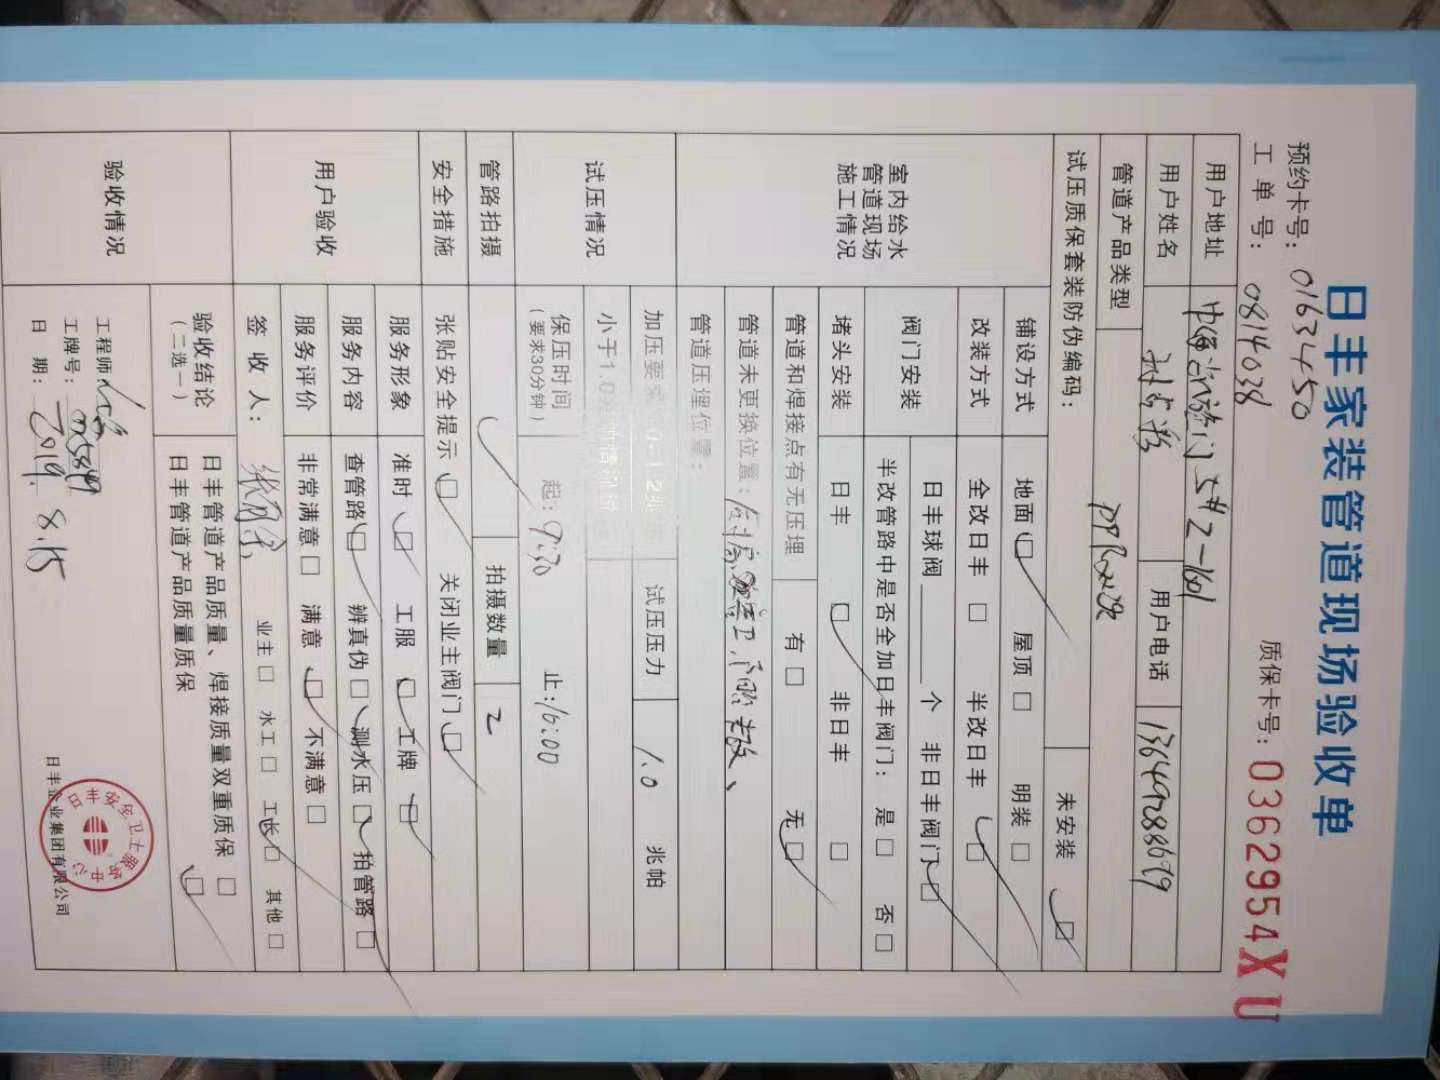 日丰家装管道现场验收单
预约卡号: 01634450
工 单 号: 0814038 质保卡号: 0362954XU
用户地址 5#2-1601
用户姓名 用户电话 13649288699
管道产品类型 PPR
试压质保套装防伪编码: 未安装 □
室内给水管道现场施工情况
铺设方式 地面 □ 屋顶 □ 明装 □
改装方式 全改日丰 □ 半改日丰 □
阀门安装 日丰球阀 个 非日丰阀门 □
半改管路中是否全加日丰阀门: 是 □ 否 □
堵头安装 日丰 □ 非日丰 □
管道和焊接点有无压埋 有 □ 无 □
管道未更换位置:
管道压埋位置:
试压情况
加压要求 试压压力 1.0 兆帕
小于1.0
保压时间 起: 9:30 止: 16:00
(要求30分钟)
管路拍摄 拍摄数量 2
安全措施 张贴安全提示 □ 关闭业主阀门 □
用户验收
服务形象 准时 □ 工服 □ 工牌 □
服务内容 查管路 □ 辨真伪 □ 测水压 □ 拍管路 □
服务评价 非常满意 □ 满意 □ 不满意 □
签 收 人: 业主 □ 水工 □ 工长 □ 其他 □
验收情况
验收结论 日丰管道产品质量、焊接质量双重质保 □
(二选一) 日丰管道产品质量质保 □
工程师:
工牌号:
日 期: 2019. 8.15 日丰企业集团有限公司
日丰安全卫士服务中心